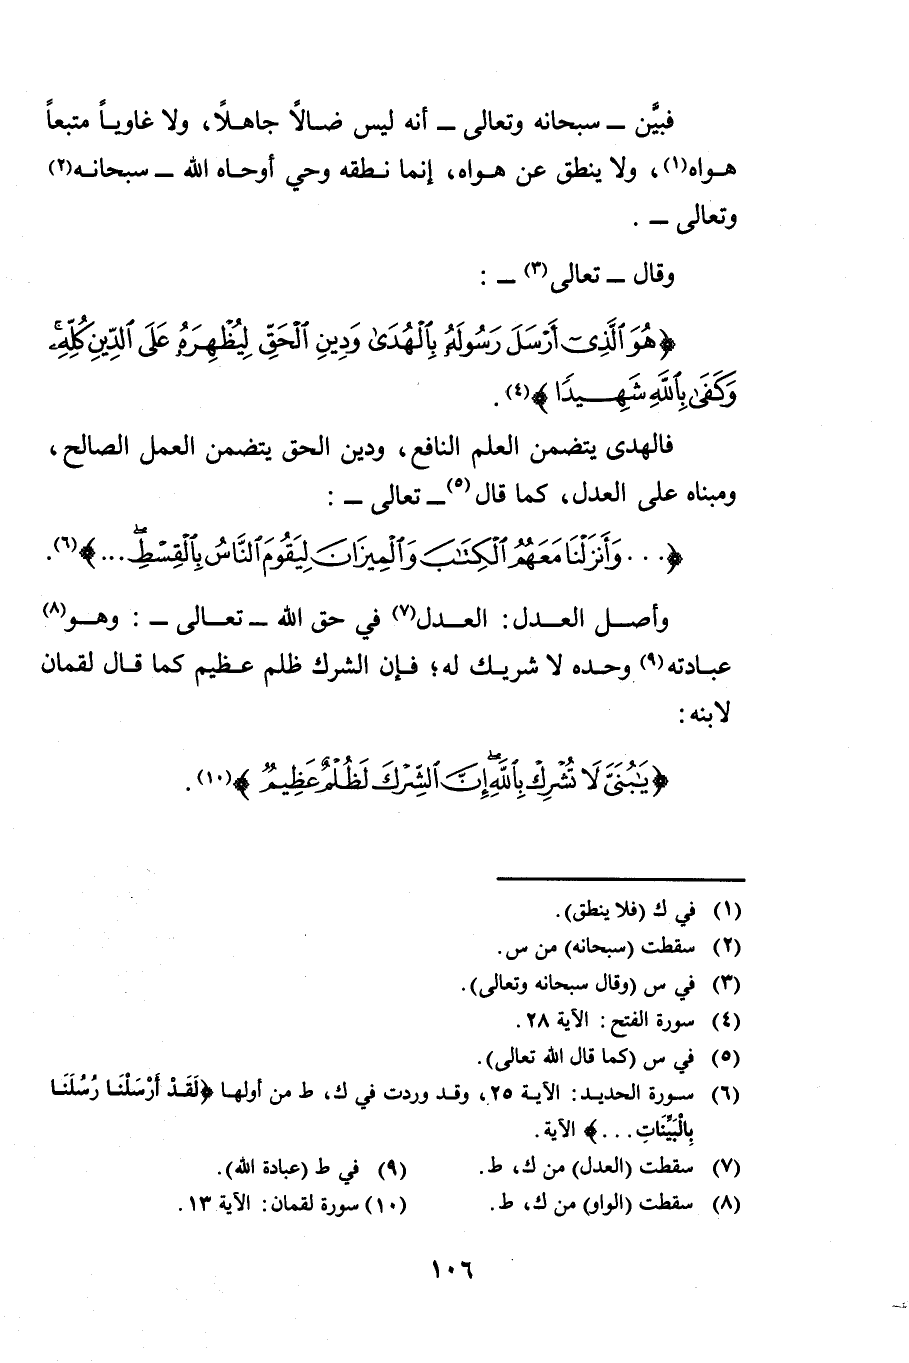 فبيَّن ــ سبحانه وتعالى ــ أنه ليس ضالاً جاهلاً، ولا غاوياً متبعاً
هواه(١)، ولا ينطق عن هواه، إنما نطقه وحي أوحاه الله ــ سبحانه(٢)
وتعالى ــ .
وقال ــ تعالى(٣) ــ :
﴿هُوَ ٱلَّذِىٓ أَرْسَلَ رَسُولَهُۥ بِٱلْهُدَىٰ وَدِينِ ٱلْحَقِّ لِيُظْهِرَهُۥ عَلَى ٱلدِّينِ كُلِّهِۦۚ
وَكَفَىٰ بِٱللَّهِ شَهِيدًا ﴾(٤).
فالهدى يتضمن العلم النافع، ودين الحق يتضمن العمل الصالح،
ومبناه على العدل، كما قال(٥) ــ تعالى ــ :
﴿... وَأَنزَلْنَا مَعَهُمُ ٱلْكِتَٰبَ وَٱلْمِيزَانَ لِيَقُومَ ٱلنَّاسُ بِٱلْقِسْطِۖ ...﴾(٦).
وأصل العدل: العدل(٧) في حق الله ــ تعالى ــ : وهو(٨)
عبادته(٩) وحده لا شريك له؛ فإن الشرك ظلم عظيم كما قال لقمان
لابنه:
﴿يَٰبُنَىَّ لَا تُشْرِكْ بِٱللَّهِۖ إِنَّ ٱلشِّرْكَ لَظُلْمٌ عَظِيمٌ ﴾(١٠).
(١) في ك (فلا ينطق).
(٢) سقطت (سبحانه) من س.
(٣) في س (وقال سبحانه وتعالى).
(٤) سورة الفتح: الآية ٢٨.
(٥) في س (كما قال الله تعالى).
(٦) سورة الحديد: الآية ٢٥، وقد وردت في ك، ط من أولها ﴿لَقَدْ أَرْسَلْنَا رُسُلَنَا
بِالْبَيِّنَاتِ...﴾ الآية.
(٧) سقطت (العدل) من ك، ط.
(٨) سقطت (الواو) من ك، ط.
(٩) في ط (عبادة الله).
(١٠) سورة لقمان: الآية ١٣.
١٠٦